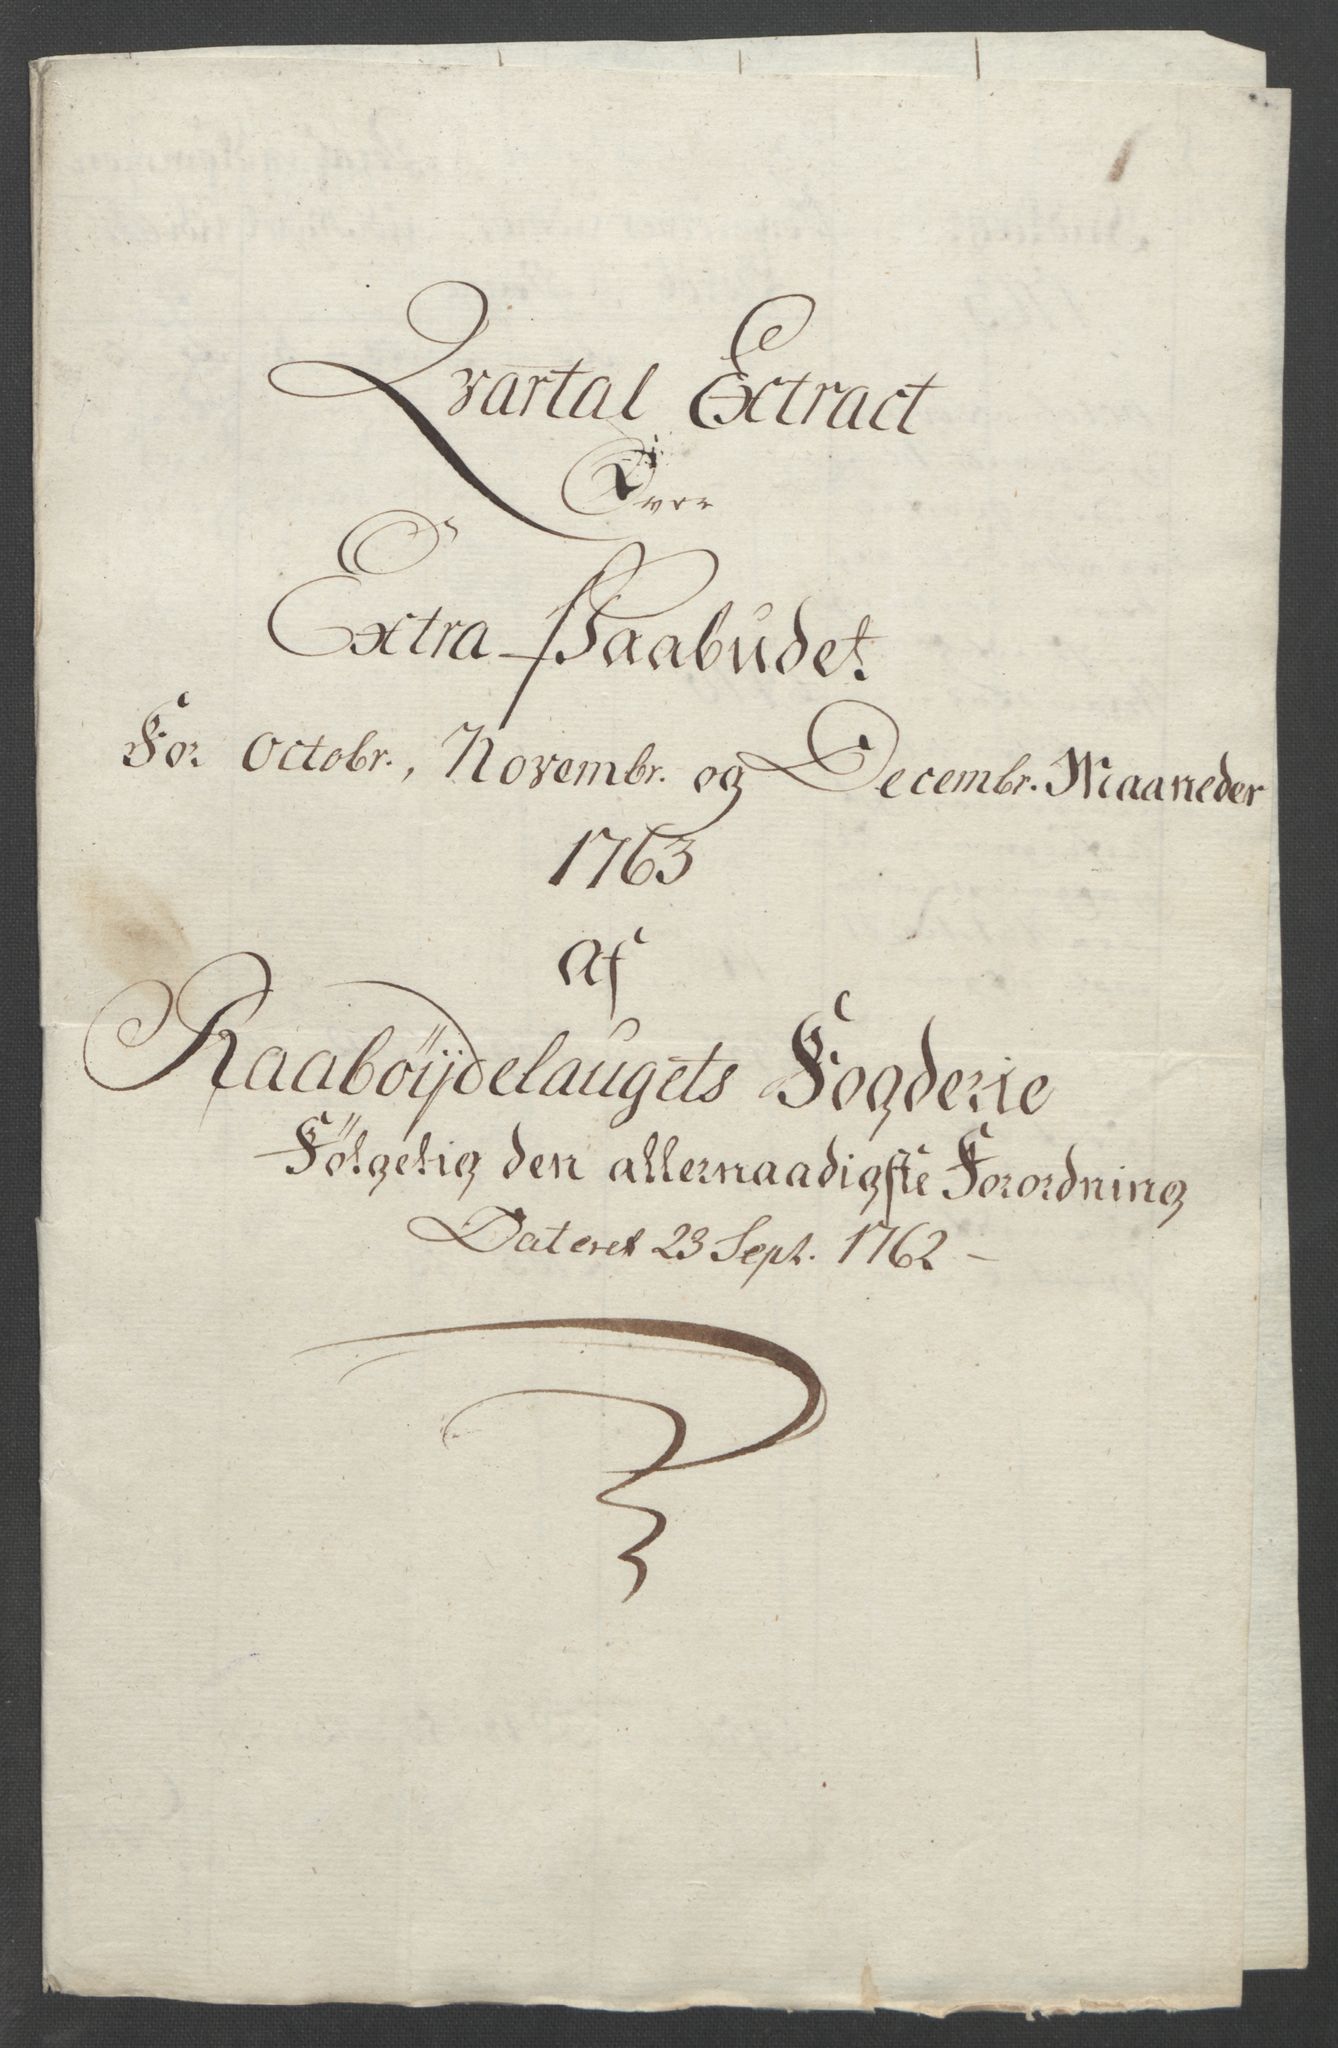 Qvartal Extract
Over
Extra-Paabudet
For Octobr., Novembr. og Decembr. Maaneder
1763
af
Raabøÿdelaugets Fogderie
Følgelig den allernaadigste Forordning
Dateret 23 Sept. 1762 –